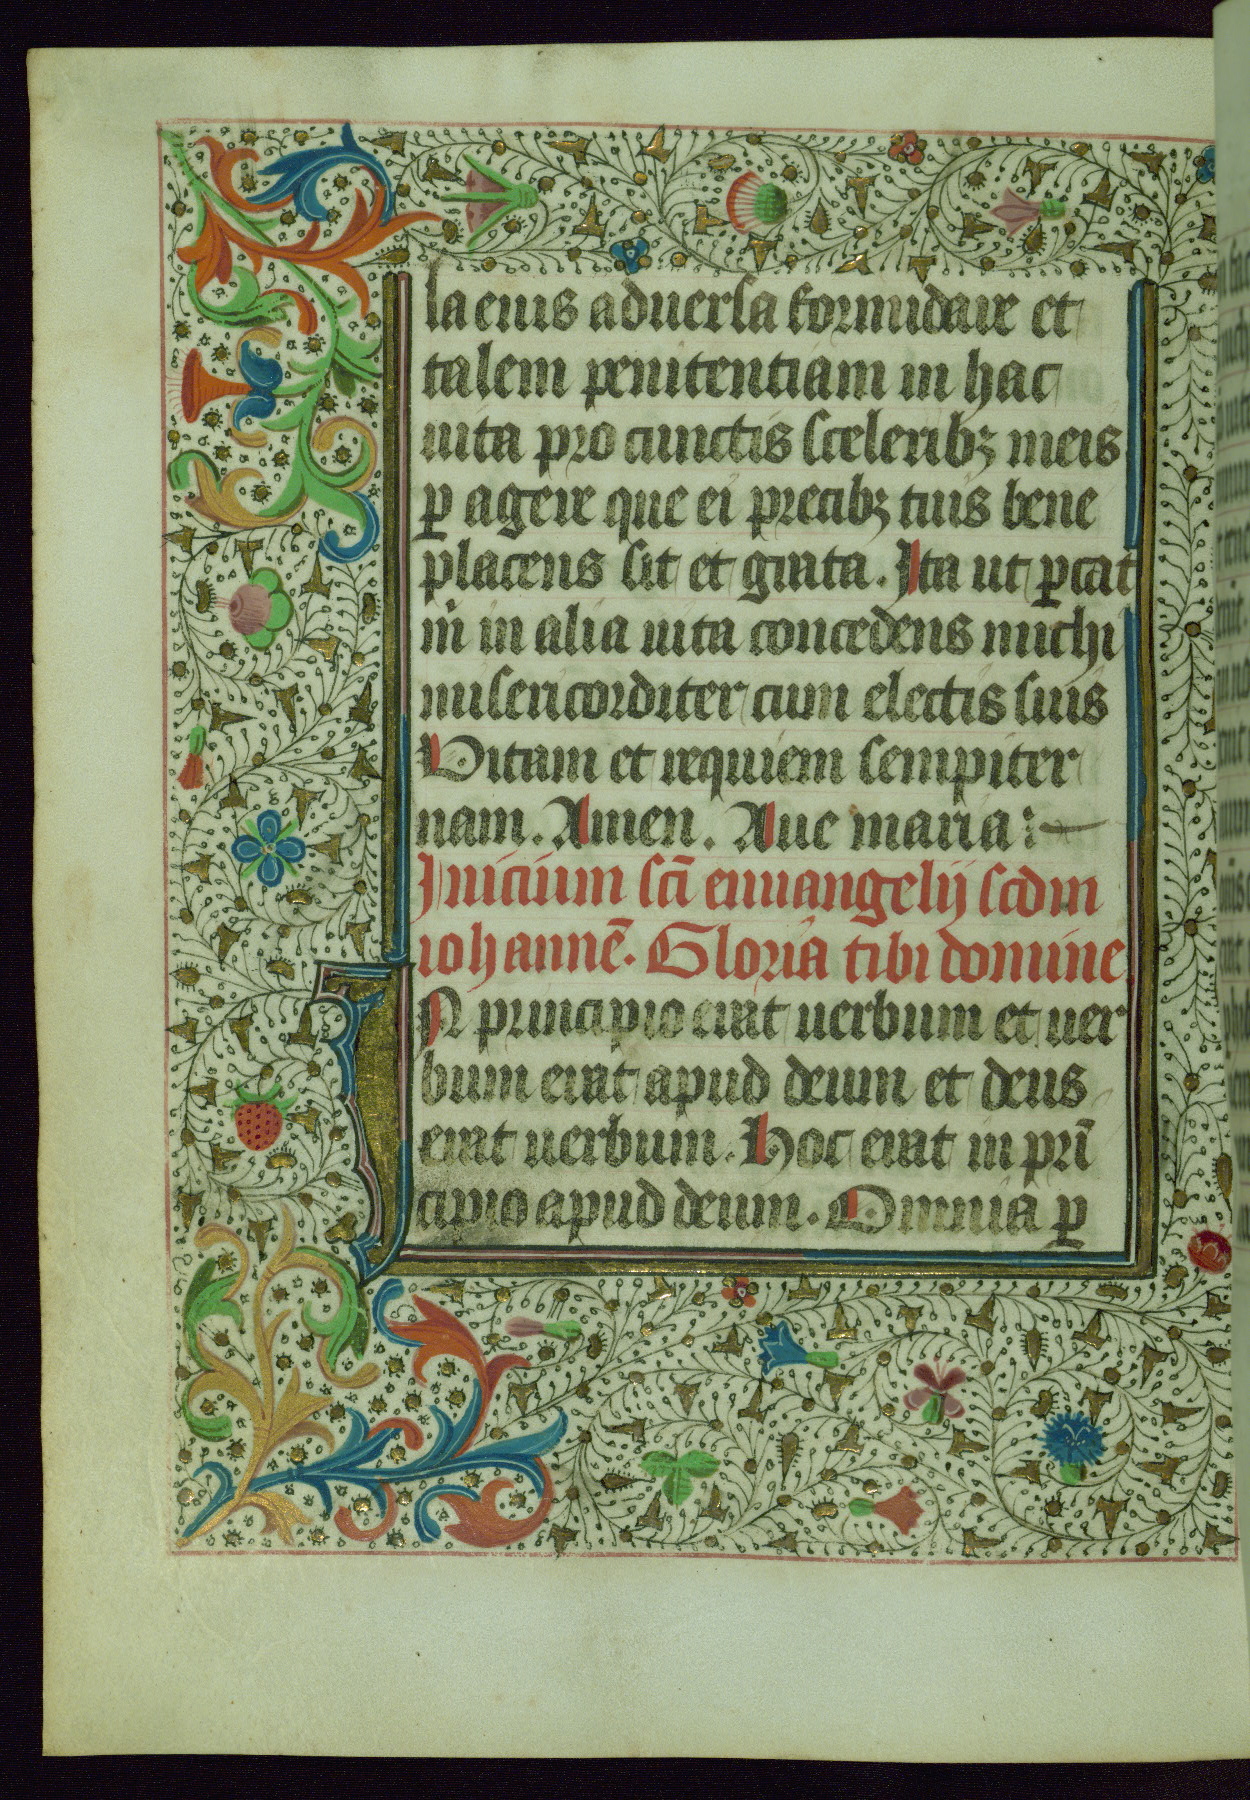 la eius aduersa formidare et
talem penitentiam in hac
uita pro cunctis sceleribꝫ meis
ꝑ agere que ei precibꝫ tuis bene
placens sit et grata. Ita ut ꝑcat
in alia uita concedens michi
misericorditer cum electis suis
Vitam et requiem sempiter
nam. Amen. Aue maria:
Inicium sc̄i euuangelij scdm
iohannē. Gloria tibi domine
IN principio erat uerbum et uer
bum erat apud deum et deus
erat uerbum. Hoc erat in prī
cipio apud deum. Omnia ꝑ